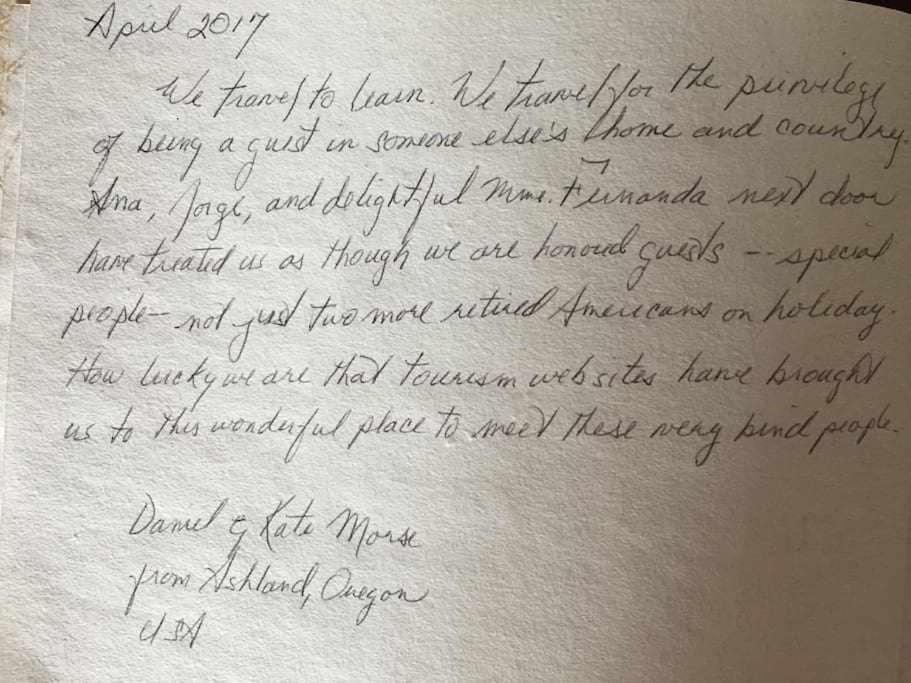 April 2017
We travel to learn. We travel for the privilege
of being a guest in someone else's home and country.
Ana, Jorge, and delightful Mme. Fernanda next door
have treated us as though we are honored guests -- special
people -- not just two more retired Americans on holiday.
How lucky we are that tourism web sites have brought
us to this wonderful place to meet these very kind people.
Daniel & Kate Morse
from Ashland, Oregon
USA